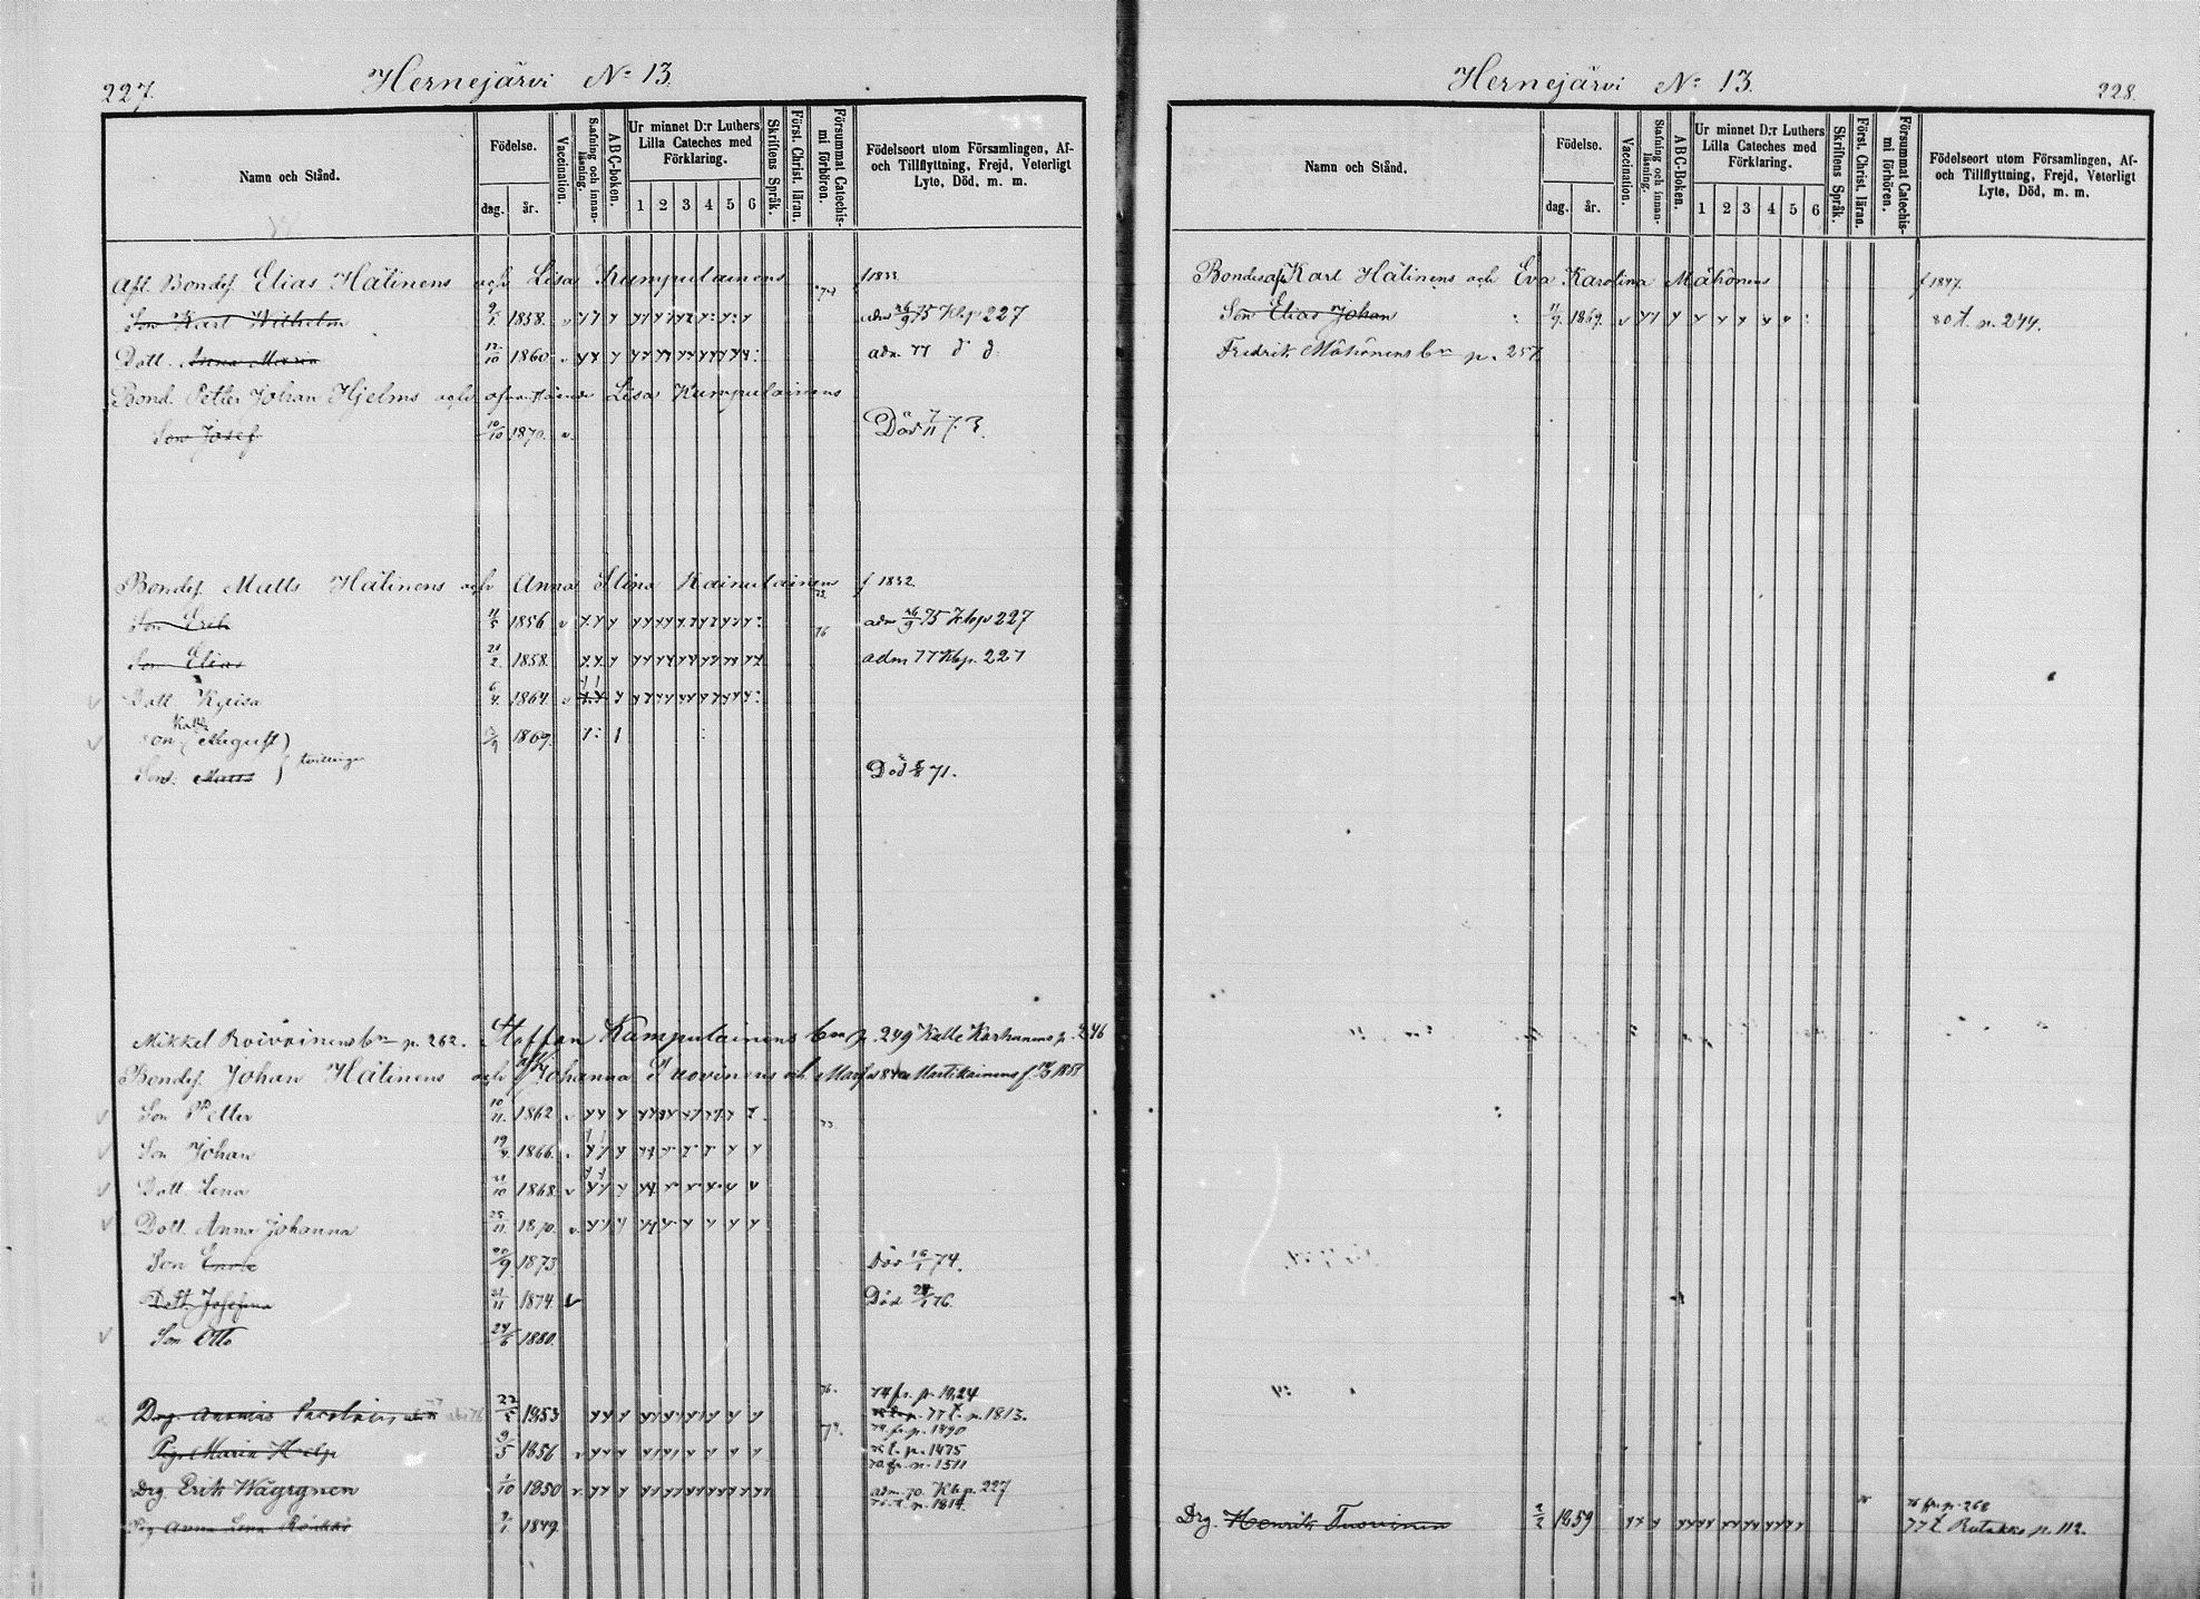 227.
Hernejärvi No 13.
Namn och Stånd.
Födelse.
dag.
år.
Vaccination.
Stafning och innan-läsning.
ABC-boken.
Ur minnet D:r Luthers
Lilla Cateches med
Förklaring.
1 2 3 4 5 6
Skriftens Språk.
Först. Christ. läran.
Försummat Catechis-
mi förhören.
Födelseort utom Församlingen, Af-
och Tillflyttning, Frejd, Veterligt
Lyte, Död, m. m.
Afl. Bondes. Elias Hätinens och Lisa Kumpulainens f 1833
Son Karl Wilhelm 9/1 1858. adm 26/9 75 Kbp 227
Dott. Anna Maria 12/10 1860 adm. 77 d d
Bond. Petter Johan Hjelms och Lisa Kumpulainens
Son Josef 10/10 1870. v. Död 7/11 73.
Bondes. Matts Hätinens och Anna Stina Kainulainens f 1832
Son Erik 11/5 1856 v adm 26/9 75 Kbp 227
Son Elias 21/2 1858. adm 77 Kbp. 227
Dott. Kaisa 6/4 1864 v
Kalle
Son (August) 1869.
Son. Matts } tvillingar Död 71.
Mikkel Roivainens bn p. 262. Staffan Kumpulainens bn p. 249 Kalle Karhunens p. 246
Bondes. Johan Hätinens och Johanna Tuovinens och Maria Martikainens f 1851
Son Petter 10/11 1862
Son Johan 19/4 1866.
Dott. Lena 21/10 1868 v
Dott. Anna Johanna 25/11 1870. v.
Son 20/9 1873 Död 16/1 74.
Dott. Josefina 21/11 1874. v Död 76.
Son Otto 24/6 1880.
74 fr. p. 1924
Drg. 22/5 1853 77 t. p. 1813.
74 fr. p. 1490
Pig. Maria 9/5 1856 t. p. 1475
fr. p. 1511
Drg. Erik Wäyrynen 1/10 1850 adm. 70. Kbp. 227
t. p. 1814.
Pig Anna Lena 9/1 1849.
Hernejärvi No 13.
228.
Namn och Stånd.
Födelse.
dag.
år.
Vaccination.
Stafning och innan-läsning.
ABC-Boken.
Ur minnet D:r Luthers
Lilla Cateches med
Förklaring.
1 2 3 4 5 6
Skriftens Språk.
Först. Christ. läran.
Försummat Catechis-
mi förhören.
Födelseort utom Församlingen, Af-
och Tillflyttning, Frejd, Veterligt
Lyte, Död, m. m.
Bondes Karl Hätinens och Eva Karolina Mähönens f 1847.
Son Elias Johan 11/9. 1869. v 80 t. p. 244.
Fredrik Mähönens bn p. 257
76 fr. p. 268
Drg. Henrik Tuovinen 2/2 1859 77 t. Rutakko p. 112.